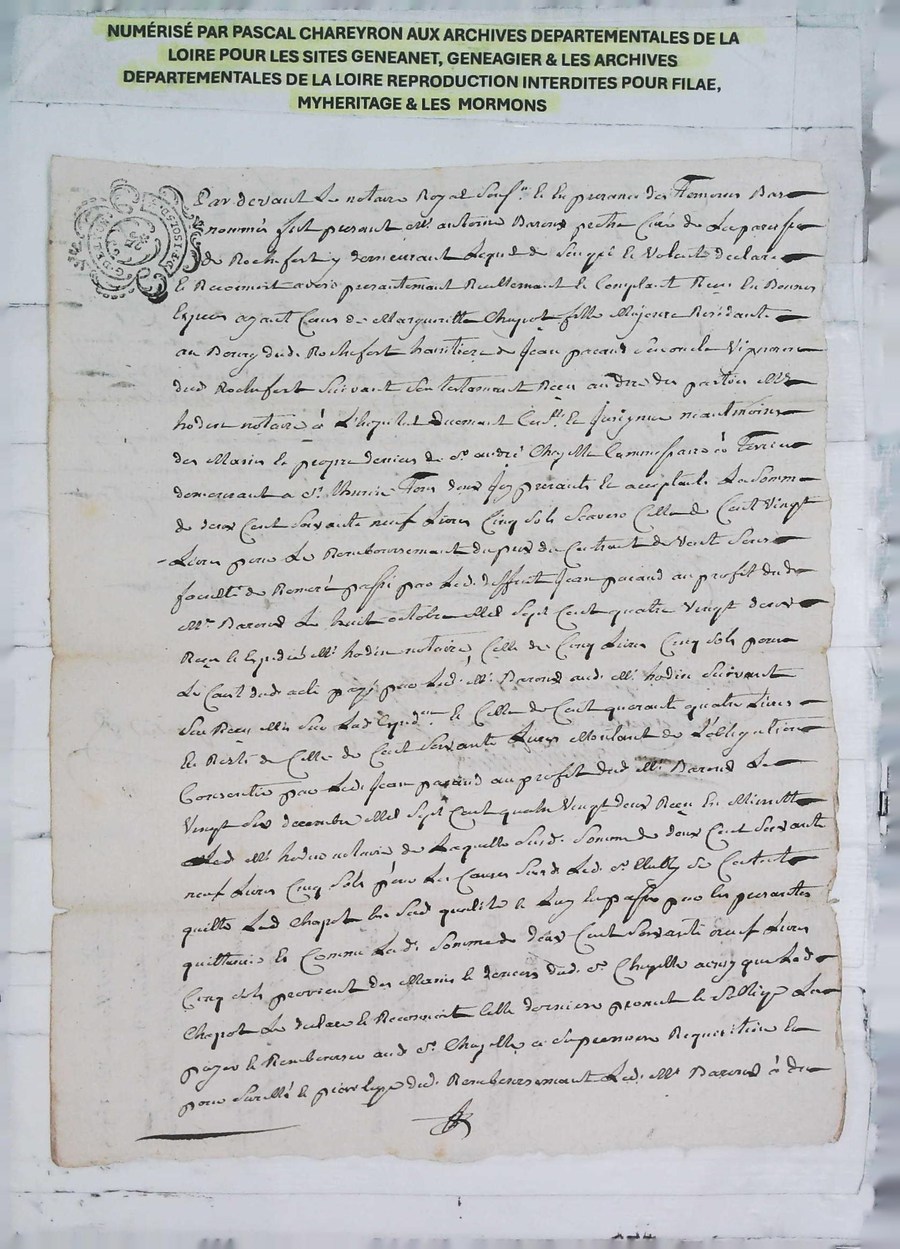 NUMÉRISÉ PAR PASCAL CHAREYRON AUX ARCHIVES DEPARTEMENTALES DE LA
LOIRE POUR LES SITES GENEANET, GENEAGIER & LES ARCHIVES
DEPARTEMENTALES DE LA LOIRE REPRODUCTION INTERDITES POUR FILAE,
MYHERITAGE & LES MORMONS
Par devant Le notaire Royal Sous.né Et En presence des Temoins Bas
nommés fut present Mr. antoine Baroud pretre Curé de La paroisse
de Rochefort y demeurant Lequel de Son gré Et Volonté declare
Et Reconnoit avoir presentement Reellement Et Comptant Reçu En Bonnes
Especes ayant Cours de Marguerite Chapot fille Majeure Residante
au Bourg dud. Rochefort heritiere de Jean pacaud Son oncle Vigneron
dud. Rochefort Suivant Son testament Reçu
hodin notaire à L'hopital neantmoins
des Mains Et propres deniers de Sr. andré Chapelle Commissaire à Terrier
demeurant a St. Thurin Tous deux Icy presents Et acceptants La Somme
de deux Cent Soixante neuf Livres Cinq Sols Scavoir Celle de Cent Vingt
Livres pour Le Remboursement du prix du Contrat de Vente Sous
faculté de Remeré passé par Led. deffunt Jean pacaud au profit dud.
Mr. Baroud Le huit octobre Mil Sept Cent quatre Vingt deux
Reçu Et Expedié Mr. hodin notaire, Celle de Cinq Livres Cinq Sols pour
Le Cout dud. acte payé par Led. Mr. Baroud aud. Mr. hodin Suivant
Son Reçu Mis Sur Lad. Exped.on Et Celle de Cent quarante quatre Livres
En Reste de Celle de Cent Soixante Livres Montant de L'obligation
Consentie par Led. Jean pacaud au profit dud. Mr. Baroud Le
Vingt Six decembre Mil Sept Cent quatre Vingt deux Reçu En Minutte
Led. Mr. hodin notaire de Laquelle Susd. Somme de deux Cent Soixante
neuf Livres Cinq Sols pour Les Causes Susd. Led. Sr.
quitte Lad. Chapot En Sad. qualité Et Luy En passe par Les presentes
quittance Et Comme Lad. Somme de deux Cent Soixante neuf Livres
Cinq Sols provient des Mains Et deniers dud. Sr. Chapelle ainsy que Lad.
Chapot Le declare Et Reconnoit Cette derniere promet Et S'oblige La
payer Et Rembourser aud. Sr. Chapelle a Sa premiere Requisition Et
pour Sureté Et privilege dud. Remboursement Led. Mr. Baroud à du